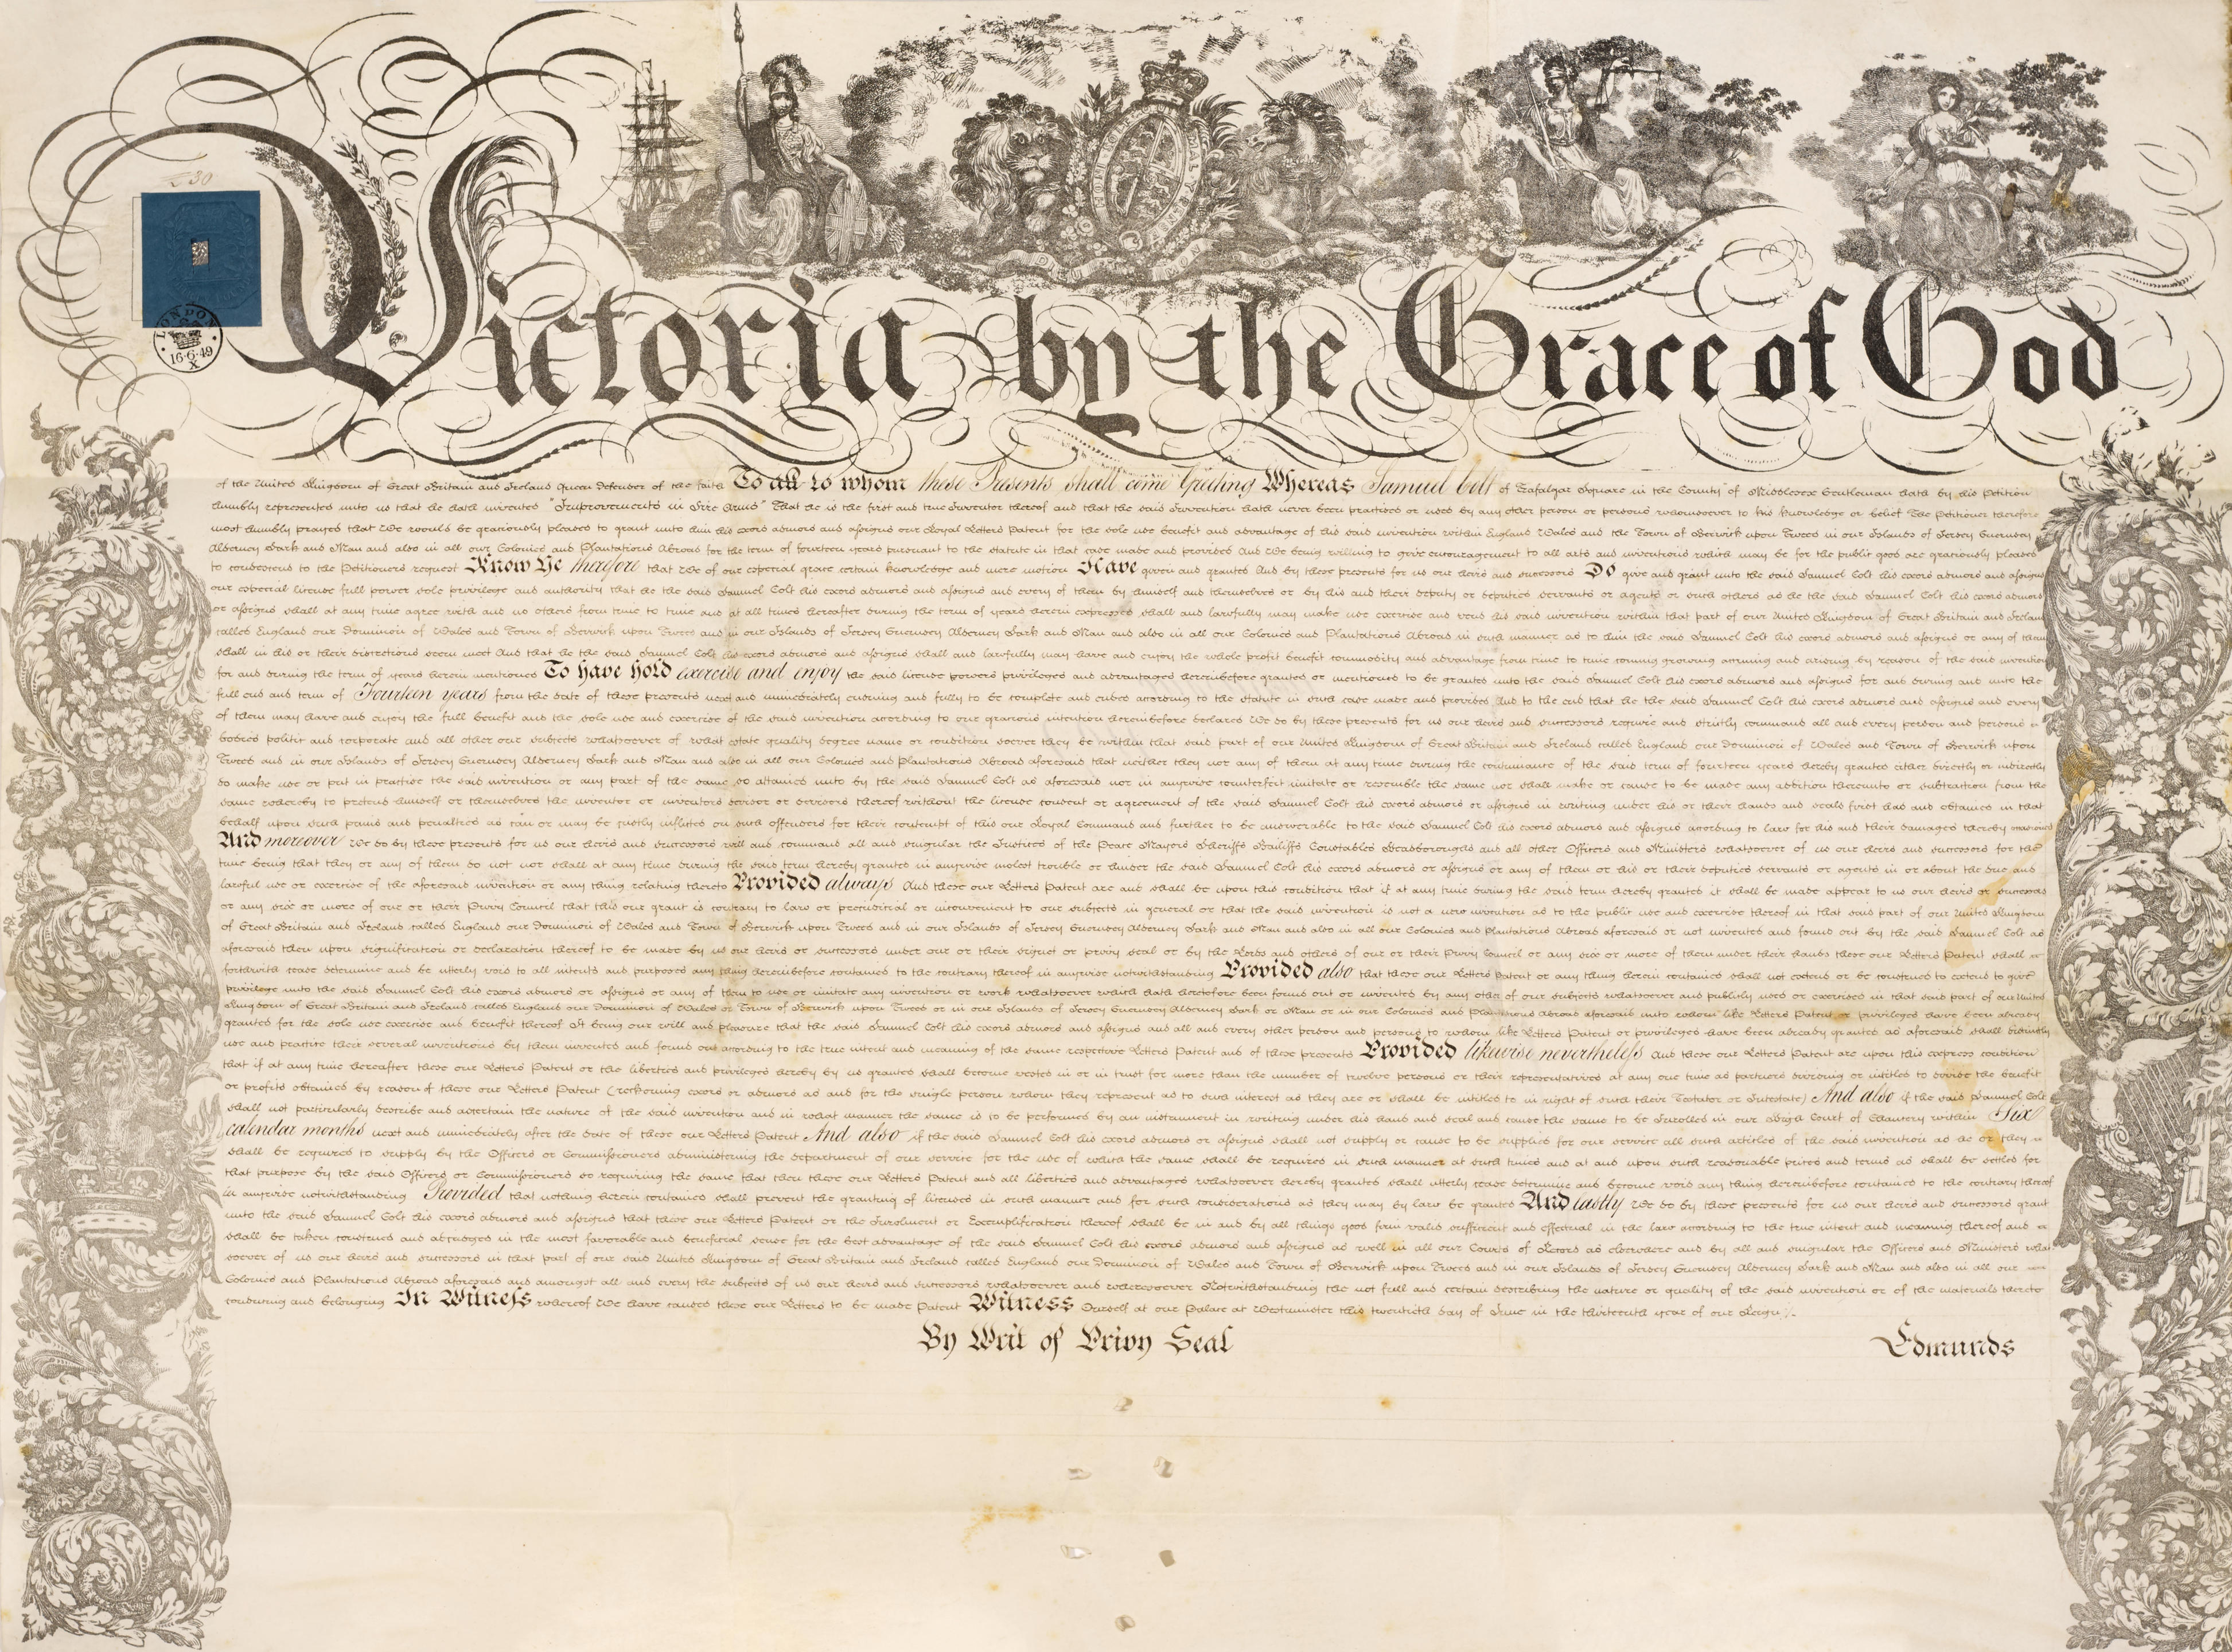 £30
LONDON
16·6·49
X
Victoria by the Grace of God
of the United Kingdom of Great Britain and Ireland Queen Defender of the faith To all to whom these Presents shall come Greeting Whereas Samuel Colt of Trafalgar Square in the County of Middlesex Gentleman hath by his Petition
humbly represented unto us that he hath invented "Improvements in Fire Arms" That he is the first and true Inventor thereof and that the said Invention hath never been practised or used by any other person or persons whomsoever to his knowledge or belief The Petitioner therefore
most humbly prayed that We would be graciously pleased to grant unto him his exors admors and assigns our Royal Letters Patent for the sole use benefit and advantage of his said invention within England Wales and the Town of Berwick upon Tweed in our Islands of Jersey Guernsey
Alderney Sark and Man and also in all our Colonies and Plantations Abroad for the term of fourteen years pursuant to the statute in that case made and provided And We being willing to give encouragement to all arts and inventions which may be for the public good are graciously pleased
to condescend to the Petitioners request Know Ye therefore that We of our especial grace certain knowledge and mere motion Have given and granted And by these presents for us our heirs and successors Do give and grant unto the said Samuel Colt his exors admors and assigns
our especial license full power sole privilege and authority that he the said Samuel Colt his exors admors and assigns and every of them by himself and themselves or by his and their deputy or deputies servants or agents or such others as he the said Samuel Colt his exors admors
or assigns shall at any time agree with and no others from time to time and at all times hereafter during the term of years herein expressed shall and lawfully may make use exercise and vend his said invention within that part of our United Kingdom of Great Britain and Ireland
called England our Dominion of Wales and Town of Berwick upon Tweed and in our Islands of Jersey Guernsey Alderney Sark and Man and also in all our Colonies and Plantations Abroad in such manner as to him the said Samuel Colt his exors admors and assigns or any of them
shall in his or their discretions seem meet And that he the said Samuel Colt his exors admors and assigns shall and lawfully may have and enjoy the whole profit benefit commodity and advantage from time to time coming growing accruing and arising by reason of the said invention
for and during the term of years herein mentioned To have hold exercise and enjoy the said license powers privileges and advantages hereinbefore granted or mentioned to be granted unto the said Samuel Colt his exors admors and assigns for and during and unto the
full end and term of Fourteen years from the date of these presents next and immediately ensuing and fully to be complete and ended according to the statute in such case made and provided And to the end that he the said Samuel Colt his exors admors and assigns and every
of them may have and enjoy the full benefit and the sole use and exercise of the said invention according to our gracious intention hereinbefore declared We do by these presents for us our heirs and successors require and strictly command all and every person and persons
bodies politic and corporate and all other our subjects whatsoever of what estate quality degree name or condition soever they be within that said part of our United Kingdom of Great Britain and Ireland called England our Dominion of Wales and Town of Berwick upon
Tweed and in our Islands of Jersey Guernsey Alderney Sark and Man and also in all our Colonies and Plantations Abroad aforesaid that neither they nor any of them at any time during the continuance of the said term of fourteen years hereby granted either directly or indirectly
do make use or put in practice the said invention or any part of the same so attained unto by the said Samuel Colt as aforesaid nor in anywise counterfeit imitate or resemble the same nor shall make or cause to be made any addition thereunto or subtraction from the
same whereby to pretend himself or themselves the inventor or inventors devisor or devisors thereof without the license consent or agreement of the said Samuel Colt his exors admors or assigns in writing under his or their hands and seals first had and obtained in that
behalf upon such pains and penalties as can or may be justly inflicted on such offenders for their contempt of this our Royal Command and further to be answerable to the said Samuel Colt his exors admors and assigns according to law for his and their damages thereby occasioned
And moreover We do by these presents for us our heirs and successors will and command all and singular the Justices of the Peace Mayors Sheriffs Bailiffs Constables Headboroughs and all other Officers and Ministers whatsoever of us our heirs and successors for the
time being that they or any of them do not nor shall at any time during the said term hereby granted in anywise molest trouble or hinder the said Samuel Colt his exors admors or assigns or any of them or his or their deputies servants or agents in or about the due and
lawful use or exercise of the aforesaid invention or any thing relating thereto Provided always And these our Letters Patent are and shall be upon this condition that if at any time during the said term hereby granted it shall be made appear to us our heirs or successors
or any six or more of our or their Privy Council that this our grant is contrary to law or prejudicial or inconvenient to our subjects in general or that the said invention is not a new invention as to the public use and exercise thereof in that said part of our United Kingdom
of Great Britain and Ireland called England our Dominion of Wales and Town of Berwick upon Tweed and in our Islands of Jersey Guernsey Alderney Sark and Man and also in all our Colonies and Plantations Abroad aforesaid or not invented and found out by the said Samuel Colt as
aforesaid then upon signification or declaration thereof to be made by us our heirs or successors under our or their signet or privy seal or by the Lords and others of our or their Privy Council or any six or more of them under their hands these our Letters Patent shall
forthwith cease determine and be utterly void to all intents and purposes any thing hereinbefore contained to the contrary thereof in anywise notwithstanding Provided also that these our Letters Patent or any thing herein contained shall not extend or be construed to extend to give
privilege unto the said Samuel Colt his exors admors or assigns or any of them to use or imitate any invention or work whatsoever which hath heretofore been found out or invented by any other of our subjects whatsoever and publicly used or exercised in that said part of our United
Kingdom of Great Britain and Ireland called England our Dominion of Wales or Town of Berwick upon Tweed or in our Islands of Jersey Guernsey Alderney Sark or Man or in our Colonies and Plantations Abroad aforesaid unto whom like Letters Patent or privileges have been already
granted for the sole use exercise and benefit thereof It being our will and pleasure that the said Samuel Colt his exors admors and assigns and all and every other person and persons to whom like Letters Patent or privileges have been already granted as aforesaid shall distinctly
use and practice their several inventions by them invented and found out according to the true intent and meaning of the same respective Letters Patent and of these presents Provided likewise nevertheless And these our Letters Patent are upon this express condition
that if at any time hereafter these our Letters Patent or the liberties and privileges hereby by us granted shall become vested in or in trust for more than the number of twelve persons or their representatives at any one time as partners dividing or intitled to divide the benefit
or profits obtained by reason of these our Letters Patent (reckoning exors or admors as and for the single person whom they represent as to such interest as they are or shall be intitled to in right of such their Testator or Intestate) And also if the said Samuel Colt
shall not particularly describe and ascertain the nature of the said invention and in what manner the same is to be performed by an instrument in writing under his hand and seal and cause the same to be Inrolled in our High Court of Chancery within Six
calendar months next and immediately after the date of these our Letters Patent And also if the said Samuel Colt his exors admors or assigns shall not supply or cause to be supplied for our service all such articles of the said invention as he or they
shall be required to supply by the Officers or Commissioners administering the department of our service for the use of which the same shall be required in such manner at such times and at and upon such reasonable prices and terms as shall be settled for
that purpose by the said Officers or Commissioners so requiring the same that then these our Letters Patent and all liberties and advantages whatsoever hereby granted shall utterly cease determine and become void any thing hereinbefore contained to the contrary thereof
in anywise notwithstanding Provided that nothing herein contained shall prevent the granting of licenses in such manner and for such considerations as they may by law be granted And lastly We do by these presents for us our heirs and successors grant
unto the said Samuel Colt his exors admors and assigns that these our Letters Patent or the Inrolment or Exemplification thereof shall be in and by all things good firm valid sufficient and effectual in the law according to the true intent and meaning thereof and
shall be taken construed and adjudged in the most favorable and beneficial sense for the best advantage of the said Samuel Colt his exors admors and assigns as well in all our Courts of Record as elsewhere and by all and singular the Officers and Ministers what
soever of us our heirs and successors in that part of our said United Kingdom of Great Britain and Ireland called England our Dominion of Wales and Town of Berwick upon Tweed and in our Islands of Jersey Guernsey Alderney Sark and Man and also in all our
Colonies and Plantations Abroad aforesaid and amongst all and every the subjects of us our heirs and successors whatsoever and wheresoever Notwithstanding the not full and certain describing the nature or quality of the said invention or of the materials thereto
conducing and belonging In Witness whereof We have caused these our Letters to be made Patent Witness Ourself at our Palace at Westminster this twentieth day of June in the thirteenth year of our Reign
By Writ of Privy Seal
Edmunds